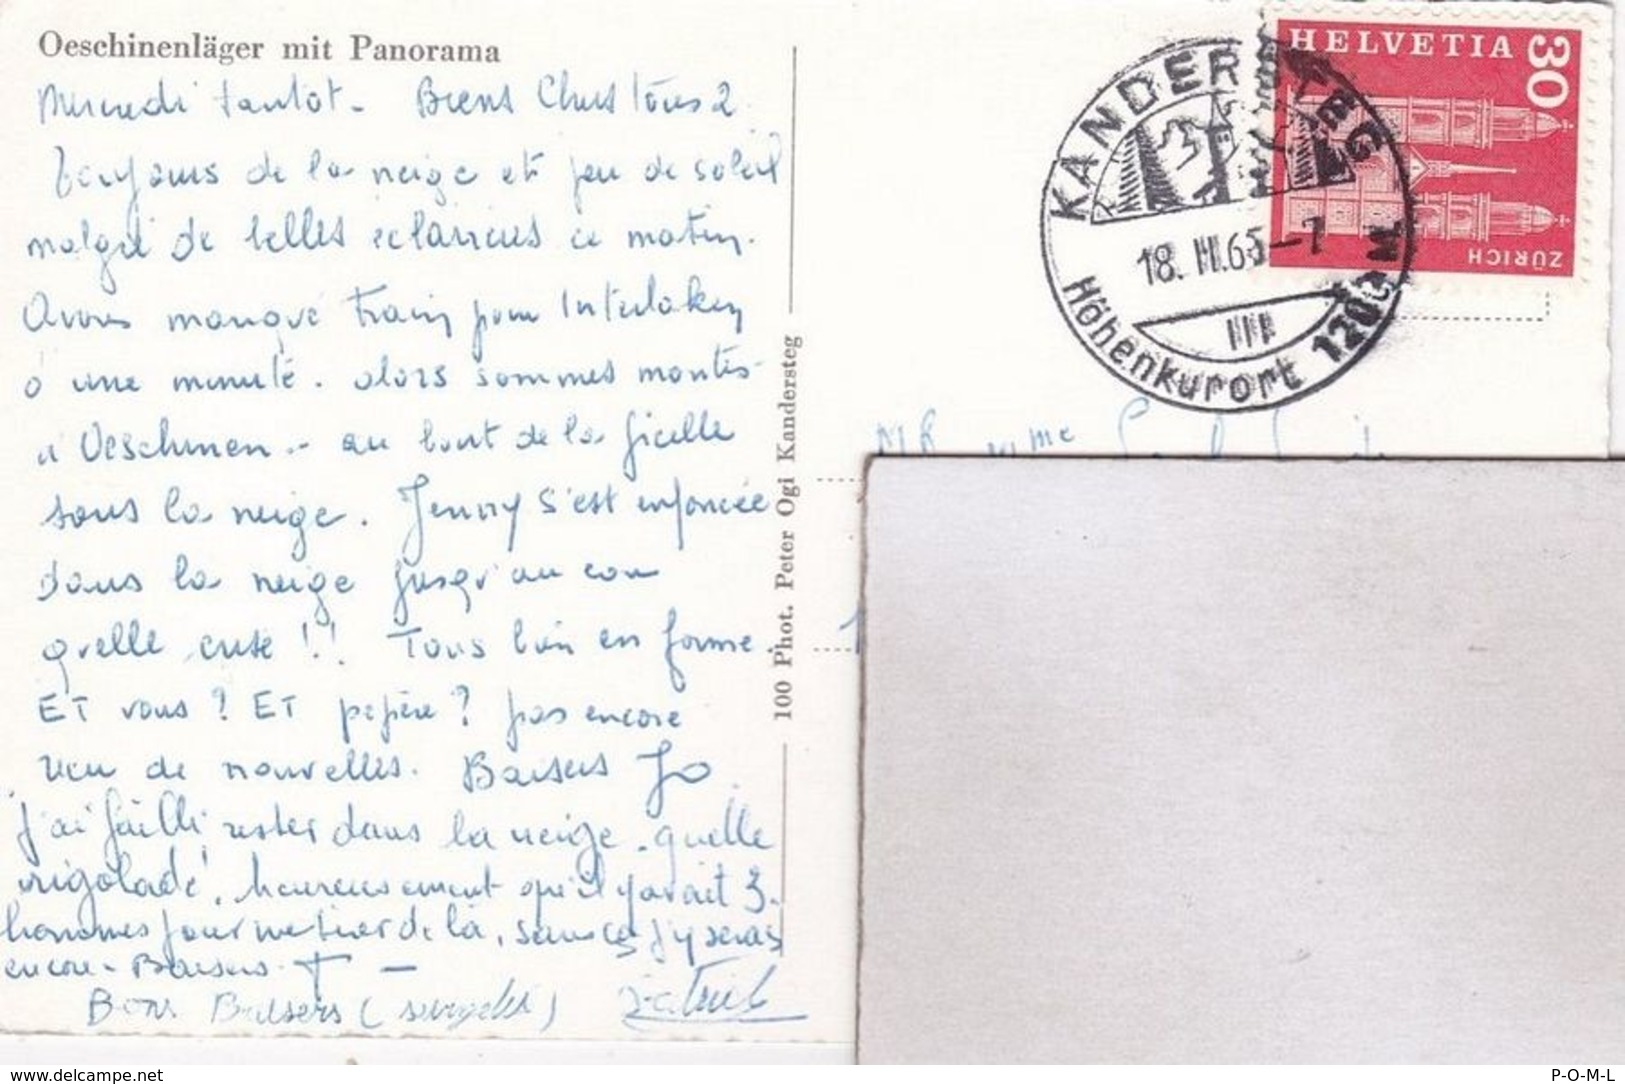 Oeschinenläger mit Panorama
Mercredi tantôt. Biens Chers Tous 2
Toujours de la neige et peu de soleil
malgré de belles eclaircies ce matin.
Avons manqué train pour Interlaken
à une minute. alors sommes montés
à Oeschinen.. au bout de la ficelle
sous la neige. Jenny s'est enfoncée
dans la neige jusqu'au cou
quelle crise !! Tous bien en forme.
ET vous ? ET pepère ? pas encore
reçu de nouvelles. Baisers Jo
j'ai failli rester dans la neige. quelle
rigolade! heureusement qu'il y avait 3
hommes pour me tirer de là, sans ça j'y serais
encore. Baisers.
Bons Baisers (surgelés)
100 Phot. Peter Ogi Kandersteg
KANDERSTEG
18. III. 65 - 7
Höhenkurort 1200 M
HELVETIA
30
ZÜRICH
MR Mme
www.delcampe.net
P-O-M-L